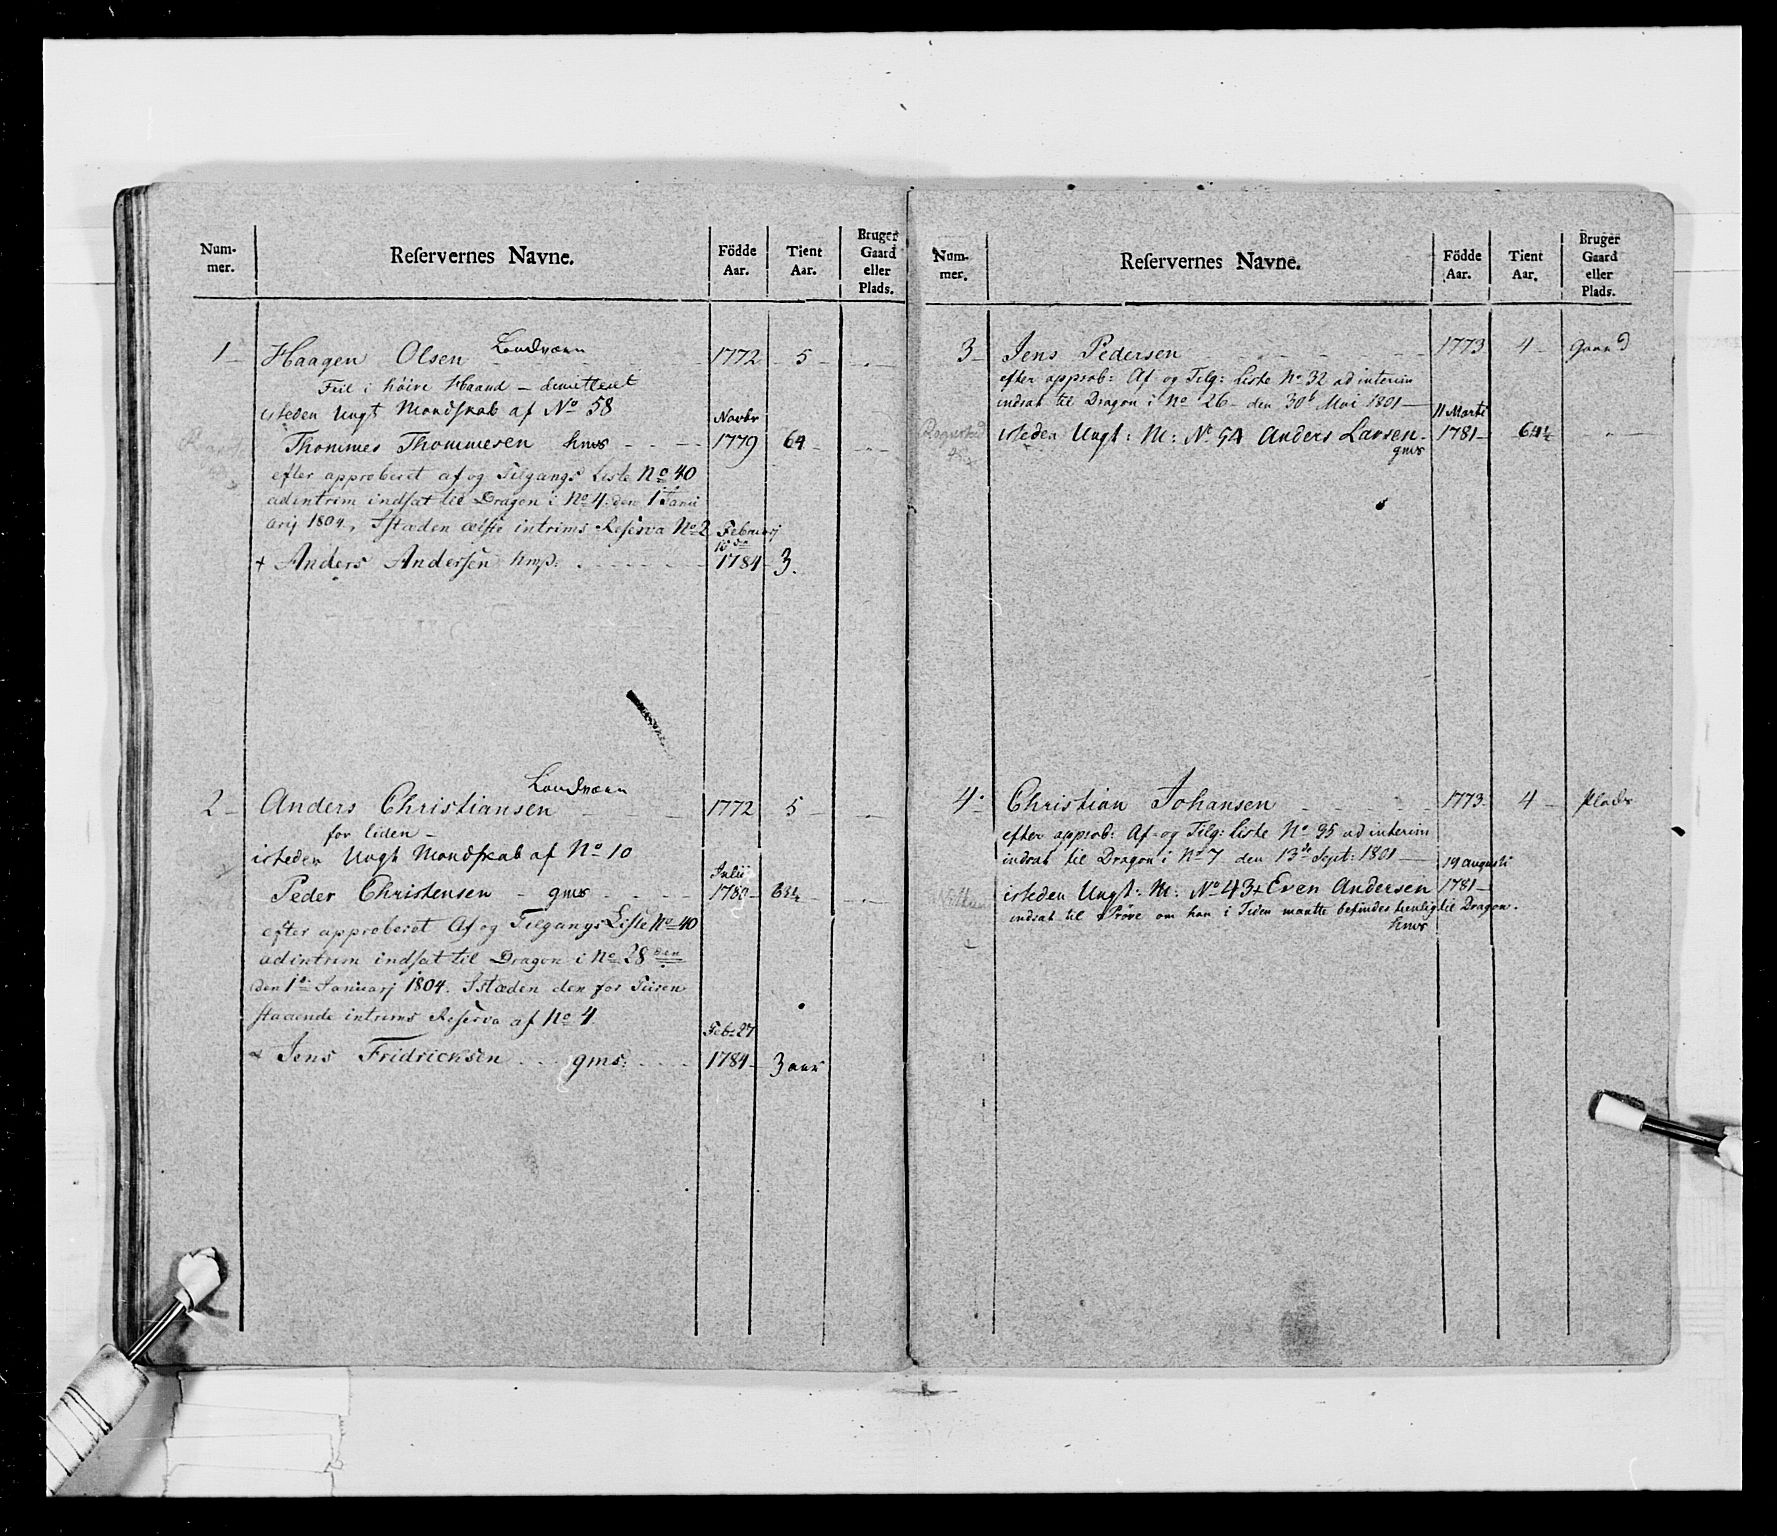 Num-
mer.
Reſervernes Navne.
Födde
Aar.
Tient
Aar.
Bruger
Gaard
eller
Plads.
1 Haagen Olsen Landværn 1772 5
Feil i höire Haand - dimitteret
isteden Ungt Mandſkab af No 58
Novbr
Thommes Thommesen hms 1779 64
efter approberet af og Tilgangs Liste No 40
adintrim indſat til Dragon i No 4 den 1 Janu
arij 1804, Istæden ælste intrims Reſerva No 2 Februarij
10de
+ Anders Anderſen hmp: 1784 3.
2 Anders Christiansen Landværn 1772 5
for liden
isteden Ungt Mandſkab af No 10
Julii
Peder Christensen - gms 1780 63¼
efter approberet Af og Tilgangs Liſte No 40
adintrim indſat til Dragon i No 28 den
den 1te Januarj 1804. Istæden den for Tiiren
staaende intrims Reſerva af No 4
Feb. 27
Jens Fridricksen gms: 1784 3 aar
Num-
mer.
Reſervernes Navne.
Födde
Aar.
Tient
Aar.
Bruger
Gaard
eller
Plads.
3 Jens Pedersen 1773 4 Gaard
efter approb: Af- og Tilg: Liste No 32 ad interim
indsat til Dragon i No 26 den 30te Mai 1801
11 Marti
isteden Ungt: M: No 54 Anders Larsen 1781 64½
gms
4 Christian Johansen 1773 4 Plads
efter approb: Af- og Tilg: Liste No 35 ad interim
indsat til Dragon i No 7 den 13de Sept: 1801
19 augusti
isteden Ungt: M: No 43 + Even Andersen 1781
indsat til Pröve om han i Tiden maatte befindes tienlig til Dragon.
hms